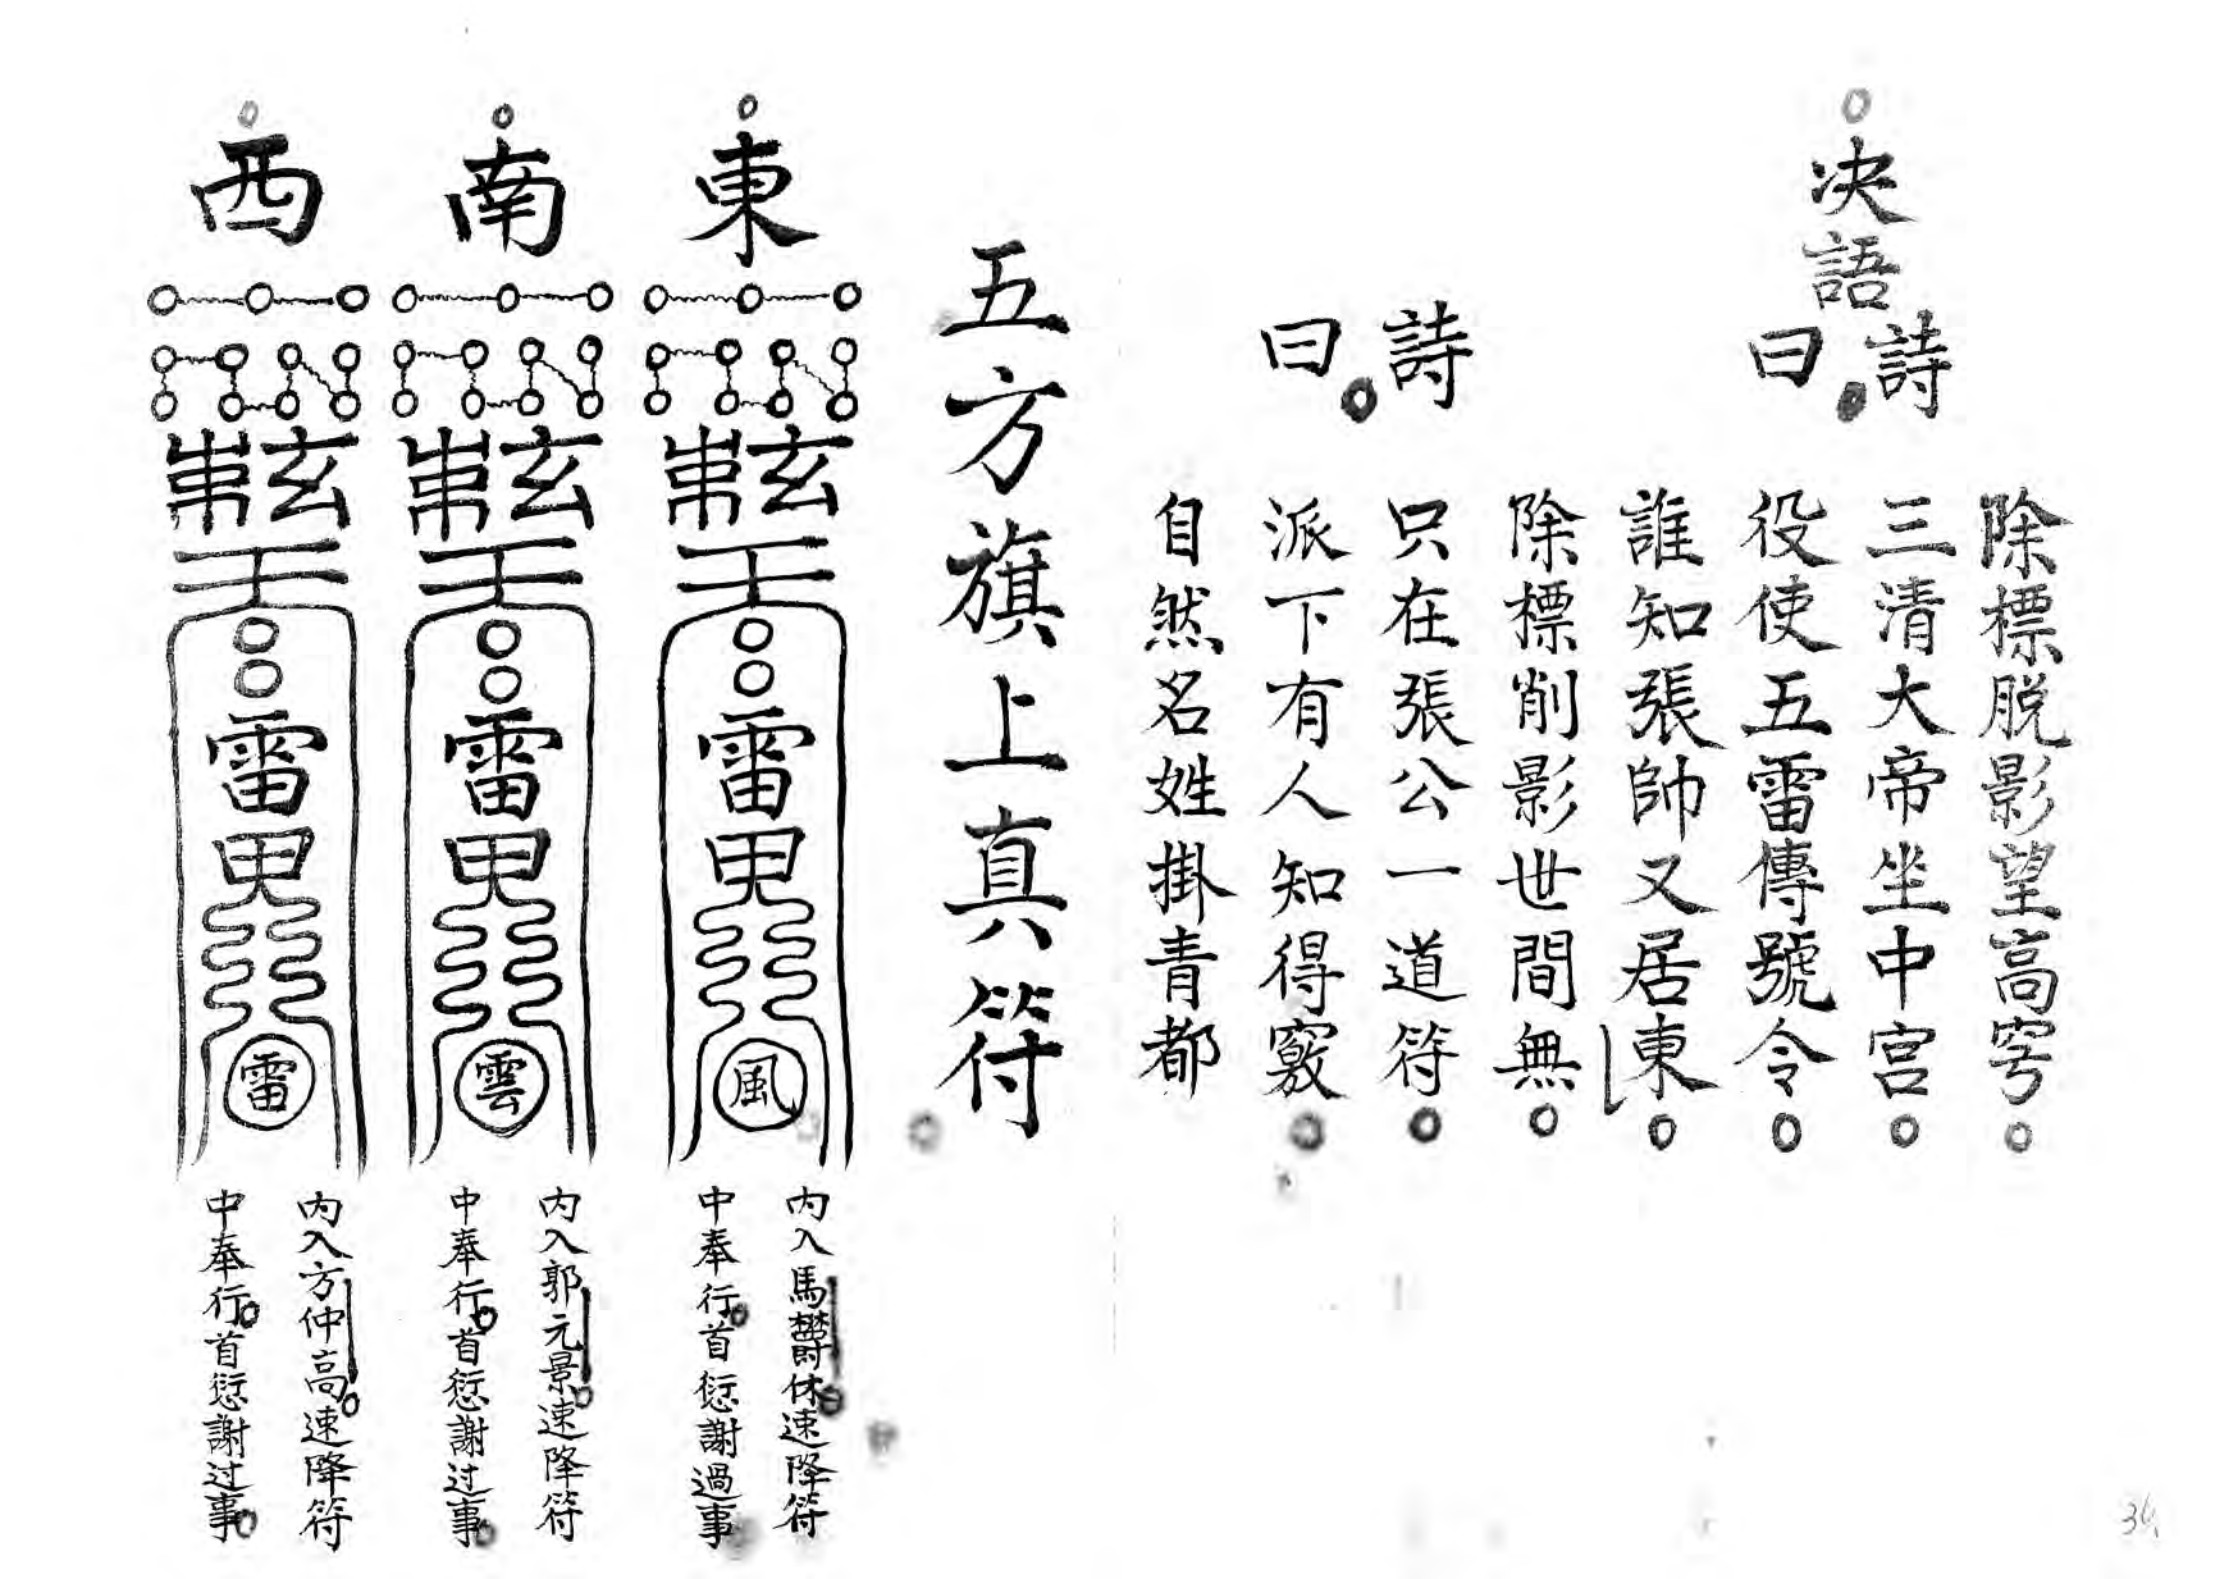 決語
詩曰
除標脱影望高穹
三清大帝坐中宫
役使五雷傳號令
誰知張帥又居東
詩曰
除標削影世間無
只在張公一道符
派下有人知得竅
自然名姓掛青都
五方旗上真符
東
玄
雷
風
内入馬欝休速降符
中奉行首愆謝過事
南
玄
雷
雲
内入郭元景速降符
中奉行首愆謝过事
西
玄
雷
雷
内入方仲高速降符
中奉行首愆謝过事
34